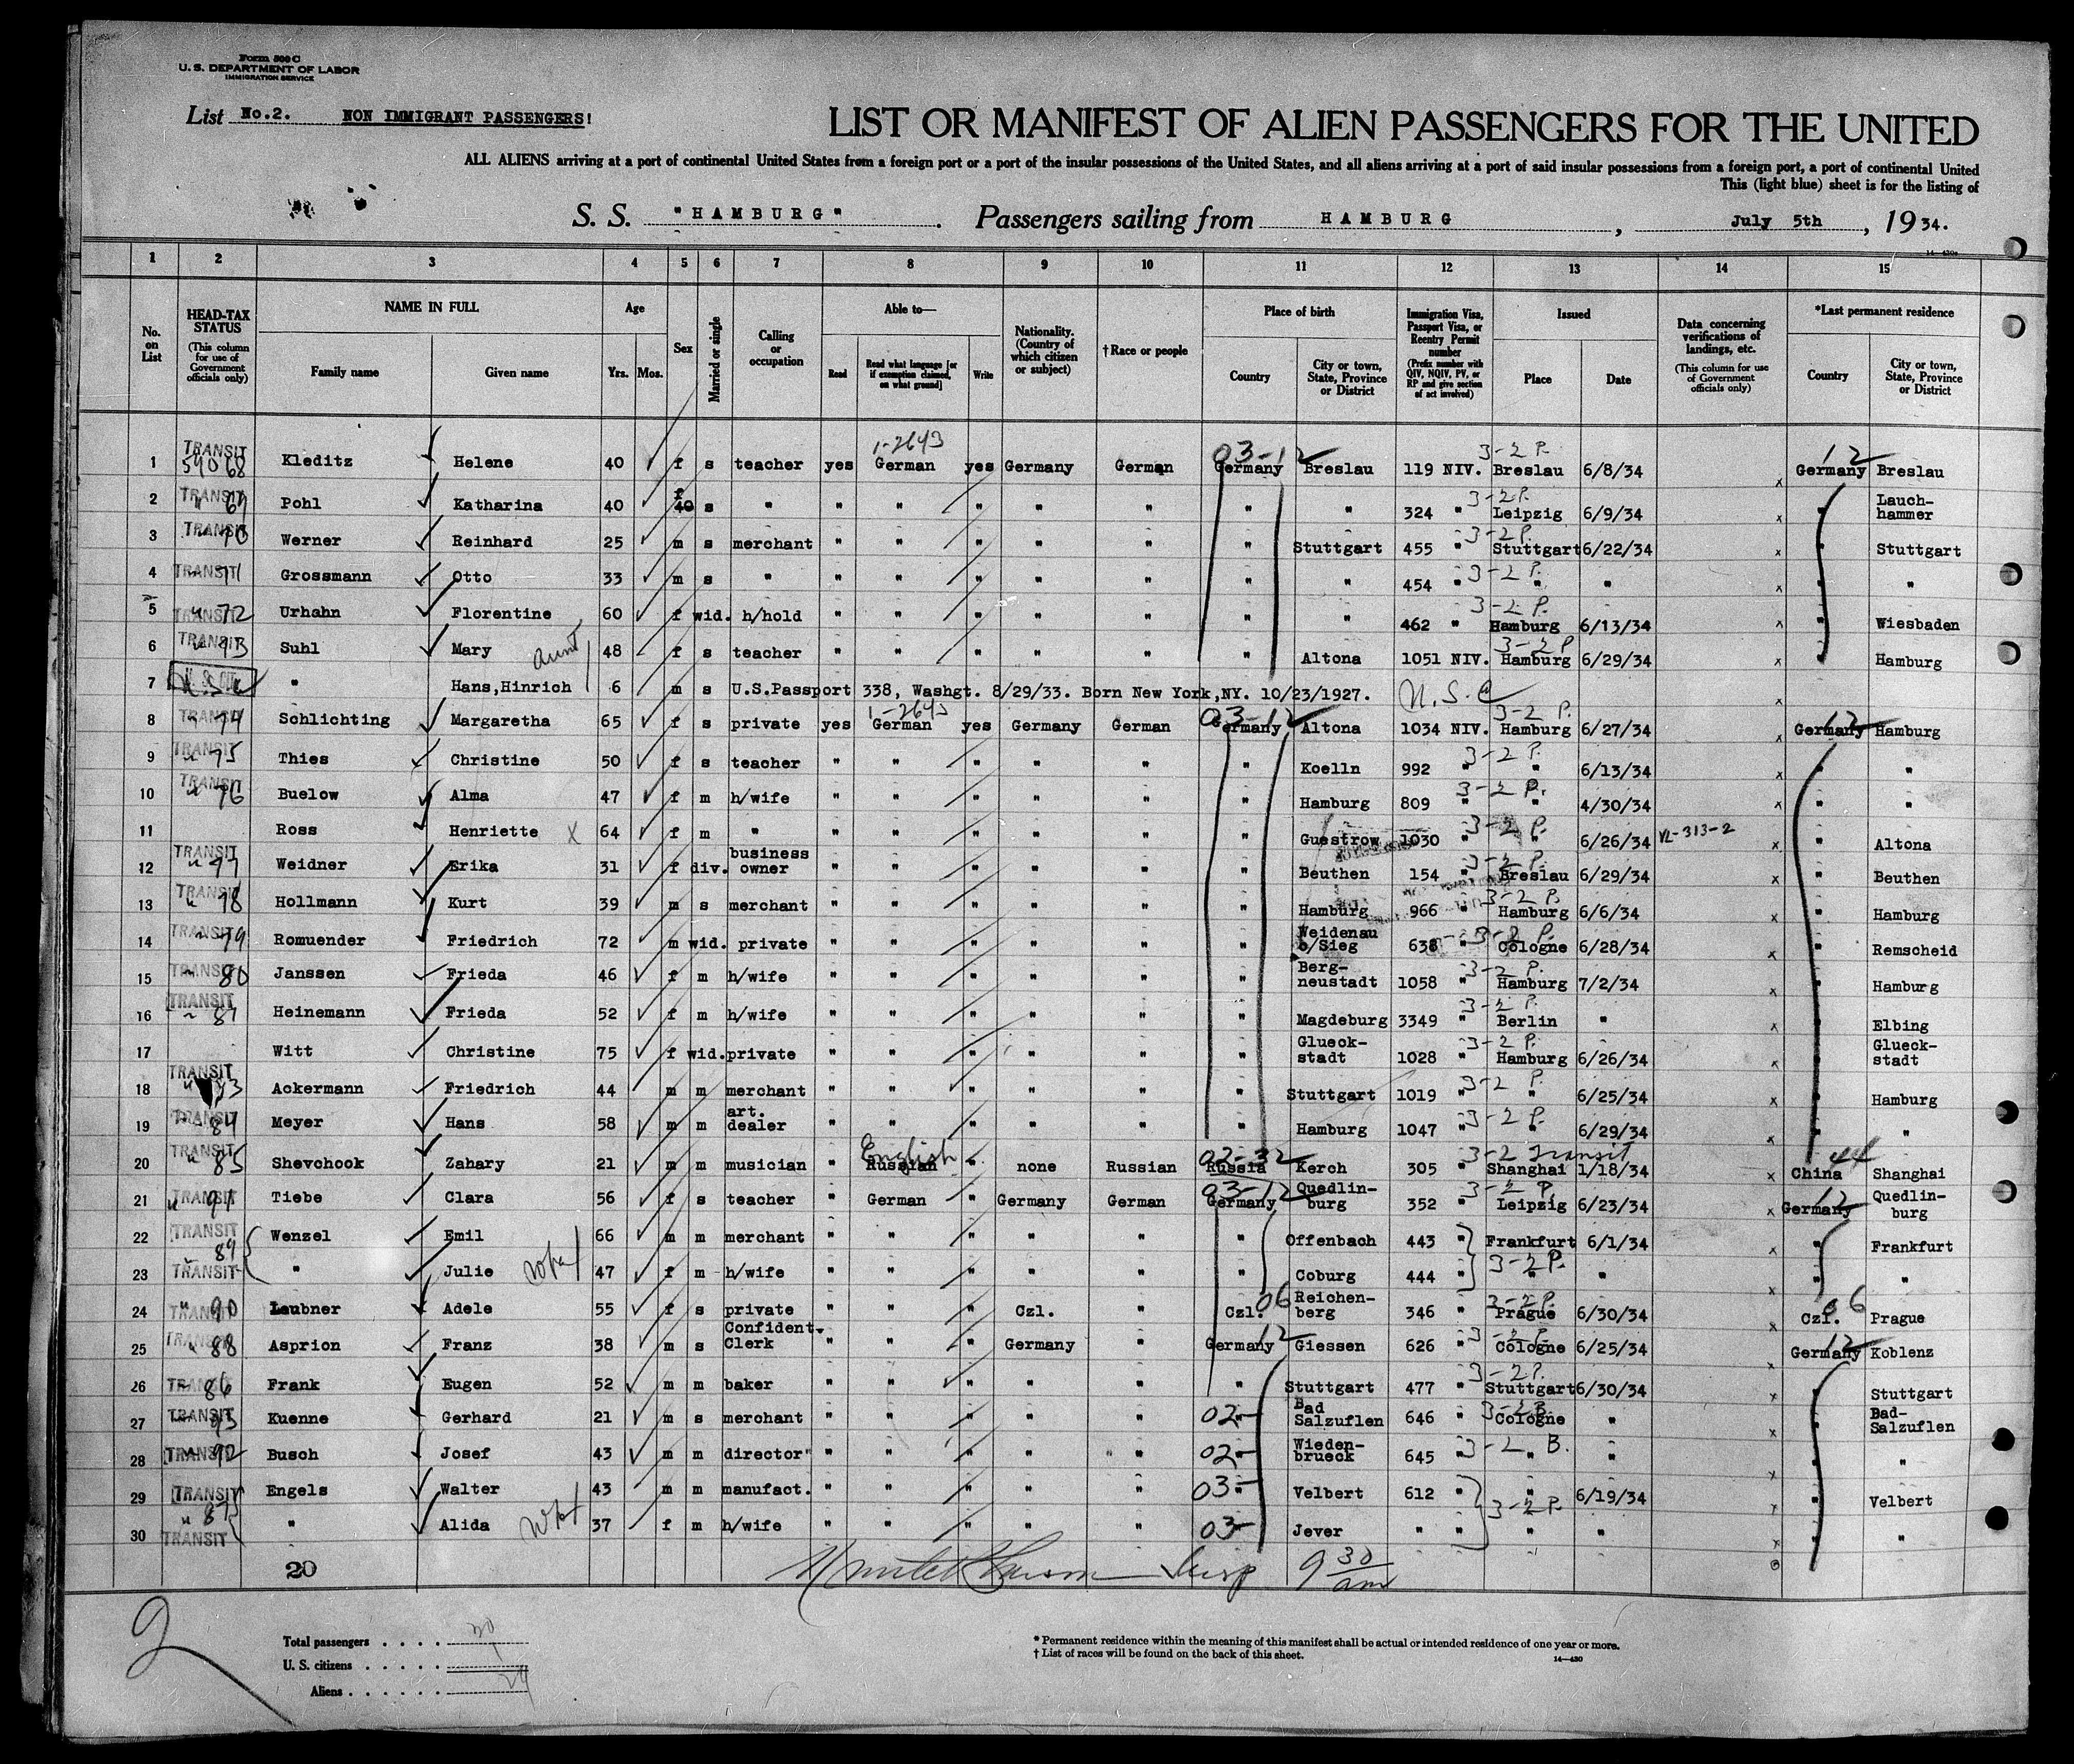 Form 500 C
U. S. DEPARTMENT OF LABOR
IMMIGRATION SERVICE
List No.2. NON IMMIGRANT PASSENGERS!
LIST OR MANIFEST OF ALIEN PASSENGERS FOR THE UNITED
ALL ALIENS arriving at a port of continental United States from a foreign port or a port of the insular possessions of the United States, and all aliens arriving at a port of said insular possessions from a foreign port, a port of continental United
This (light blue) sheet is for the listing of
S. S. "HAMBURG". Passengers sailing from HAMBURG, July 5th, 1934.
1 2 3 4 5 6 7 8 9 10 11 12 13 14 15
No. on List
HEAD-TAX STATUS (This column for use of Government officials only)
NAME IN FULL Family name Given name
Age Yrs. Mos.
Sex
Married or single
Calling or occupation
Able to— Read Read what language [or if exemption claimed, on what ground] Write
Nationality. (Country of which citizen or subject)
†Race or people
Place of birth Country City or town, State, Province or District
Immigration Visa, Passport Visa, or Reentry Permit number (Prefix number with QIV, NQIV, PV, or RP and give section of act involved)
Issued Place Date
Data concerning verifications of landings, etc. (This column for use of Government officials only)
*Last permanent residence Country City or town, State, Province or District
1-2643 03-12 3-2 P. 12
1 TRANSIT 59068 Kleditz Helene 40 f s teacher yes German yes Germany German Germany Breslau 119 NIV. Breslau 6/8/34 x Germany Breslau
2 TRANSIT " 69 Pohl Katharina 40 f 40 s " " " " " " " " 324 " 3-2 P. Leipzig 6/9/34 x " Lauch-hammer
3 TRANSIT " 70 Werner Reinhard 25 m s merchant " " " " " " Stuttgart 455 " 3-2 P. Stuttgart 6/22/34 x " Stuttgart
4 TRANSIT " 71 Grossmann Otto 33 m s " " " " " " " " 454 " 3-2 P. " " x " "
5 TRANSIT " 72 Urhahn Florentine 60 f wid. h/hold " " " " " " " 462 " 3-2 P. Hamburg 6/13/34 x " Wiesbaden
6 TRANSIT " 73 Suhl Mary aunt 48 f s teacher " " " " " " Altona 1051 NIV. 3-2 P Hamburg 6/29/34 x " Hamburg
7 " Hans,Hinrich 6 m s U.S.Passport 338, Washgt. 8/29/33. Born New York,NY. 10/23/1927. U.S.C x
8 TRANSIT " 74 Schlichting Margaretha 65 f s private yes 1-2643 German yes Germany German 03-12 Germany Altona 1034 NIV. 3-2 P. Hamburg 6/27/34 x 12 Germany Hamburg
9 TRANSIT " 75 Thies Christine 50 f s teacher " " " " " " Koelln 992 " 3-2 P. " 6/13/34 x " "
10 TRANSIT " 76 Buelow Alma 47 f m h/wife " " " " " " Hamburg 809 " 3-2 P. " 4/30/34 x " "
11 Ross Henriette X 64 f m " " " " " " " Guestrow 1030 3-2 P. " 6/26/34 VL-313-2 x " Altona
12 TRANSIT " 77 Weidner Erika 31 f div. business owner " " " " " " Beuthen 154 " 3-2 P. Breslau 6/29/34 x " Beuthen
13 TRANSIT " 78 Hollmann Kurt 39 m s merchant " " " " " " Hamburg 966 " 3-2 P. Hamburg 6/6/34 x " Hamburg
14 TRANSIT " 79 Romuender Friedrich 72 m wid. private " " " " " " Weidenau b/Sieg 638 " 3-2 P. Cologne 6/28/34 x " Remscheid
15 TRANSIT " 80 Janssen Frieda 46 f m h/wife " " " " " " Berg-neustadt 1058 " 3-2 P. Hamburg 7/2/34 x " Hamburg
16 TRANSIT " 81 Heinemann Frieda 52 f m h/wife " " " " " " Magdeburg 3349 " 3-2 P. Berlin " x " Elbing
17 Witt Christine 75 f wid. private " " " " " " Glueck-stadt 1028 " 3-2 P. Hamburg 6/26/34 x " Glueck-stadt
18 TRANSIT " 83 Ackermann Friedrich 44 m m merchant " " " " " " Stuttgart 1019 " 3-2 P. " 6/25/34 x " Hamburg
19 TRANSIT " 84 Meyer Hans 58 m m art. dealer " " " " " " Hamburg 1047 " 3-2 P. " 6/29/34 x " "
20 TRANSIT " 85 Shevchook Zahary 21 m m musician " English Russian " none Russian 02-32 Russia Kerch 305 " 3-2 Transit Shanghai 1/18/34 x 44 China Shanghai
21 TRANSIT " 91 Tiebe Clara 56 f s teacher " German " Germany German 03-12 Germany Quedlin-burg 352 " 3-2 P. Leipzig 6/23/34 x 12 Germany Quedlin-burg
22 TRANSIT 89 Wenzel Emil 66 m m merchant " " " " " " Offenbach 443 " Frankfurt 6/1/34 x " Frankfurt
23 TRANSIT " Julie wife 47 f m h/wife " " " " " " Coburg 444 " 3-2 P. " " x " "
24 TRANSIT " 90 Laubner Adele 55 f s private " " " Czl. " Czl. 06 Reichen-berg 346 " 3-2 P. Prague 6/30/34 x Czl. 06 Prague
25 TRANSIT " 88 Asprion Franz 38 m s Confident. Clerk " " " Germany " Germany 12 Giessen 626 " 3-2 P. Cologne 6/25/34 x Germany 12 Koblenz
26 TRANSIT 86 Frank Eugen 52 m m baker " " " " " " Stuttgart 477 " 3-2 P. Stuttgart 6/30/34 x " Stuttgart
27 TRANSIT 93 Kuenne Gerhard 21 m s merchant " " " " " 02- " Bad Salzuflen 646 " 3-2 B. Cologne " x " Bad-Salzuflen
28 TRANSIT 92 Busch Josef 43 m m director " " " " " 02- " Wieden-brueck 645 " 3-2 B. " " x " "
29 TRANSIT Engels Walter 43 m m manufact. " " " " " 03- " Velbert 612 " " 6/19/34 x " Velbert
30 " 87 TRANSIT " Alida wife 37 f m h/wife " " " " " 03- Jever " " 3-2 P. " " x " "
20 Insp 9 30 am
2
Total passengers . . . . 30
U. S. citizens . . . . . 1
Aliens . . . . . . 29
* Permanent residence within the meaning of this manifest shall be actual or intended residence of one year or more.
† List of races will be found on the back of this sheet.
14—430